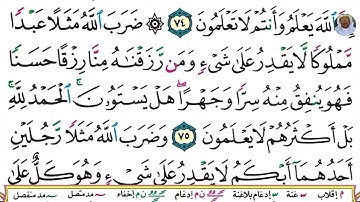 ٱللَّهَ يَعْلَمُ وَأَنتُمْ لَا تَعْلَمُونَ ٧٤ ۞ ضَرَبَ ٱللَّهُ مَثَلًا عَبْدًا
مَّمْلُوكًا لَّا يَقْدِرُ عَلَىٰ شَىْءٍ وَمَن رَّزَقْنَٰهُ مِنَّا رِزْقًا حَسَنًا
فَهُوَ يُنفِقُ مِنْهُ سِرًّا وَجَهْرًا ۖ هَلْ يَسْتَوُۥنَ ۚ ٱلْحَمْدُ لِلَّهِ ۚ
بَلْ أَكْثَرُهُمْ لَا يَعْلَمُونَ ٧٥ وَضَرَبَ ٱللَّهُ مَثَلًا رَّجُلَيْنِ
أَحَدُهُمَآ أَبْكَمُ لَا يَقْدِرُ عَلَىٰ شَىْءٍ وَهُوَ كَلٌّ عَلَىٰ
م إقلاب غنة إدغام بلاغنة ن م إدغام ن م إخفاء مد متصل مد منفصل